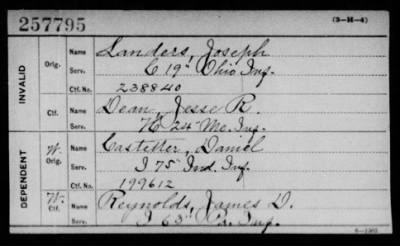 257795 (3-H-4)
INVALID
Orig. Name Sanders, Joseph
Serv. C 19" Ohio Inf.
Ctf. No. 238840
Ctf. Name Dean, Jesse R.
Serv. H 24" Me. Inf.
DEPENDENT
W. Orig. Name Castetter, Daniel
Serv. I 75" Ind. Inf.
Ctf. No. 199612
W. Ctf. Name Reynolds, James D.
Serv. I 63" Pa. Inf.